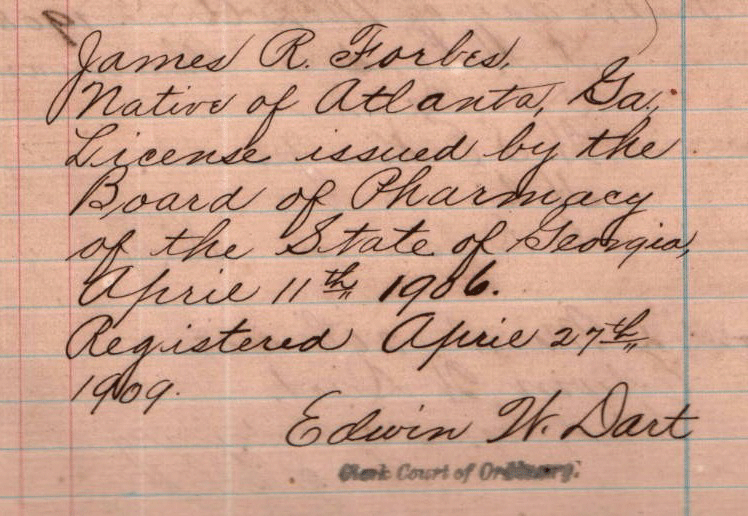 James R. Forbes,
Native of Atlanta, Ga.,
License issued by the
Board of Pharmacy
of the State of Georgia,
April 11th 1906.
Registered April 27th
1909.
Edwin W. Dart
Clerk Court of Ordinary.